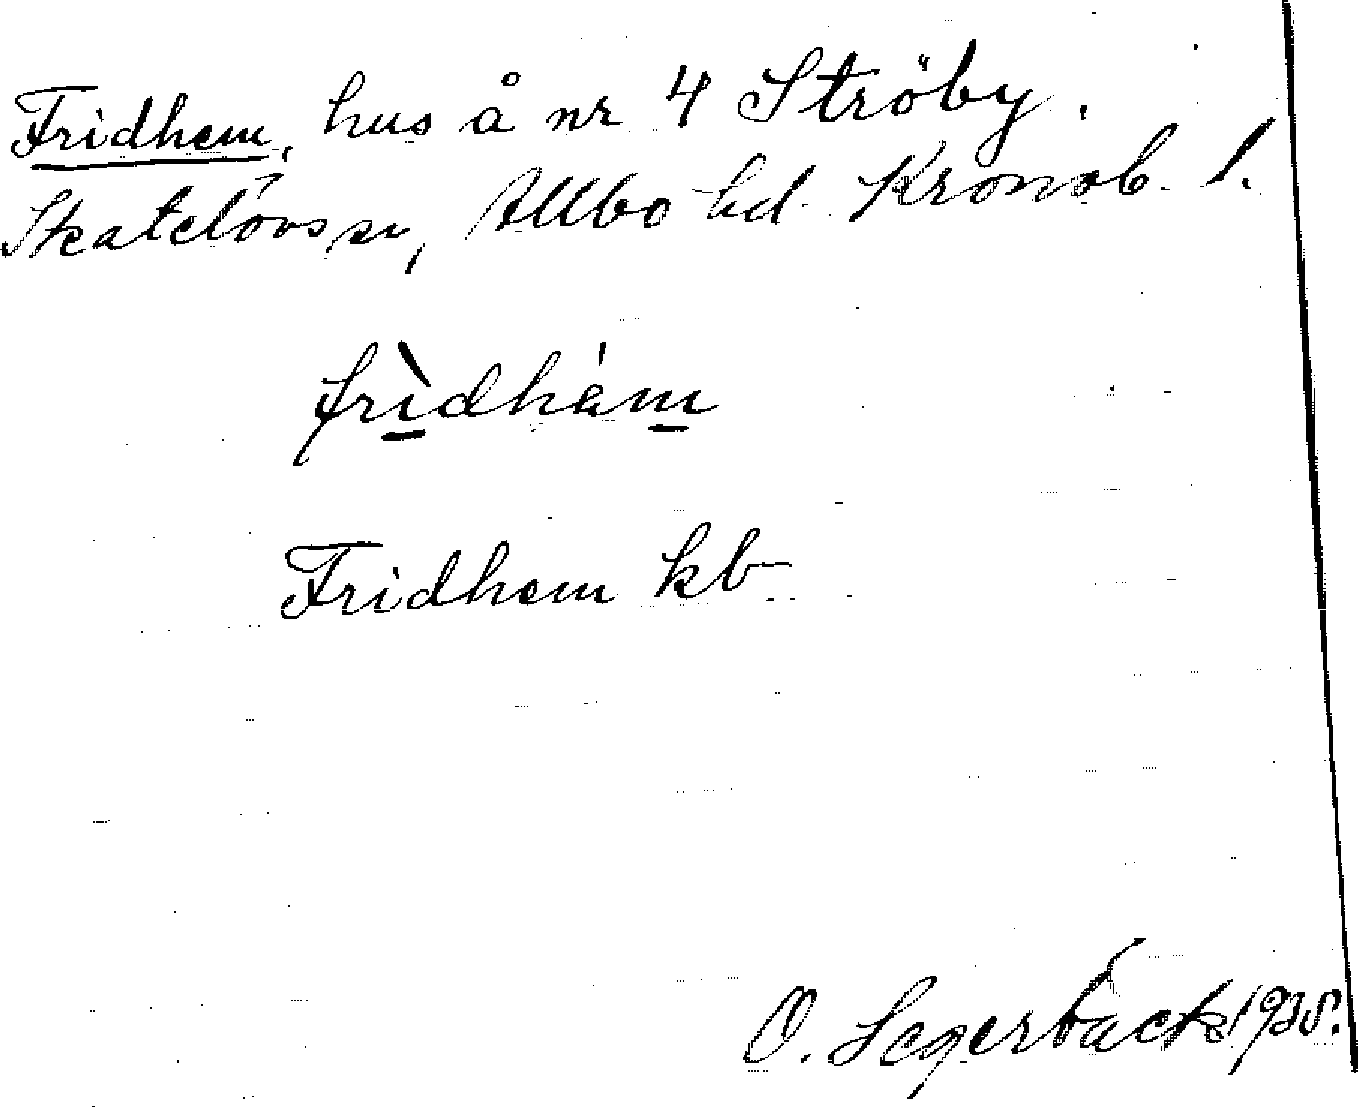 Fridhem, hus å nr 4 Ströby.
Skatelövs sn, Allbo hd. Kronob. l.
frìdhám
Fridhem kb
O. Segerbäck 1935.